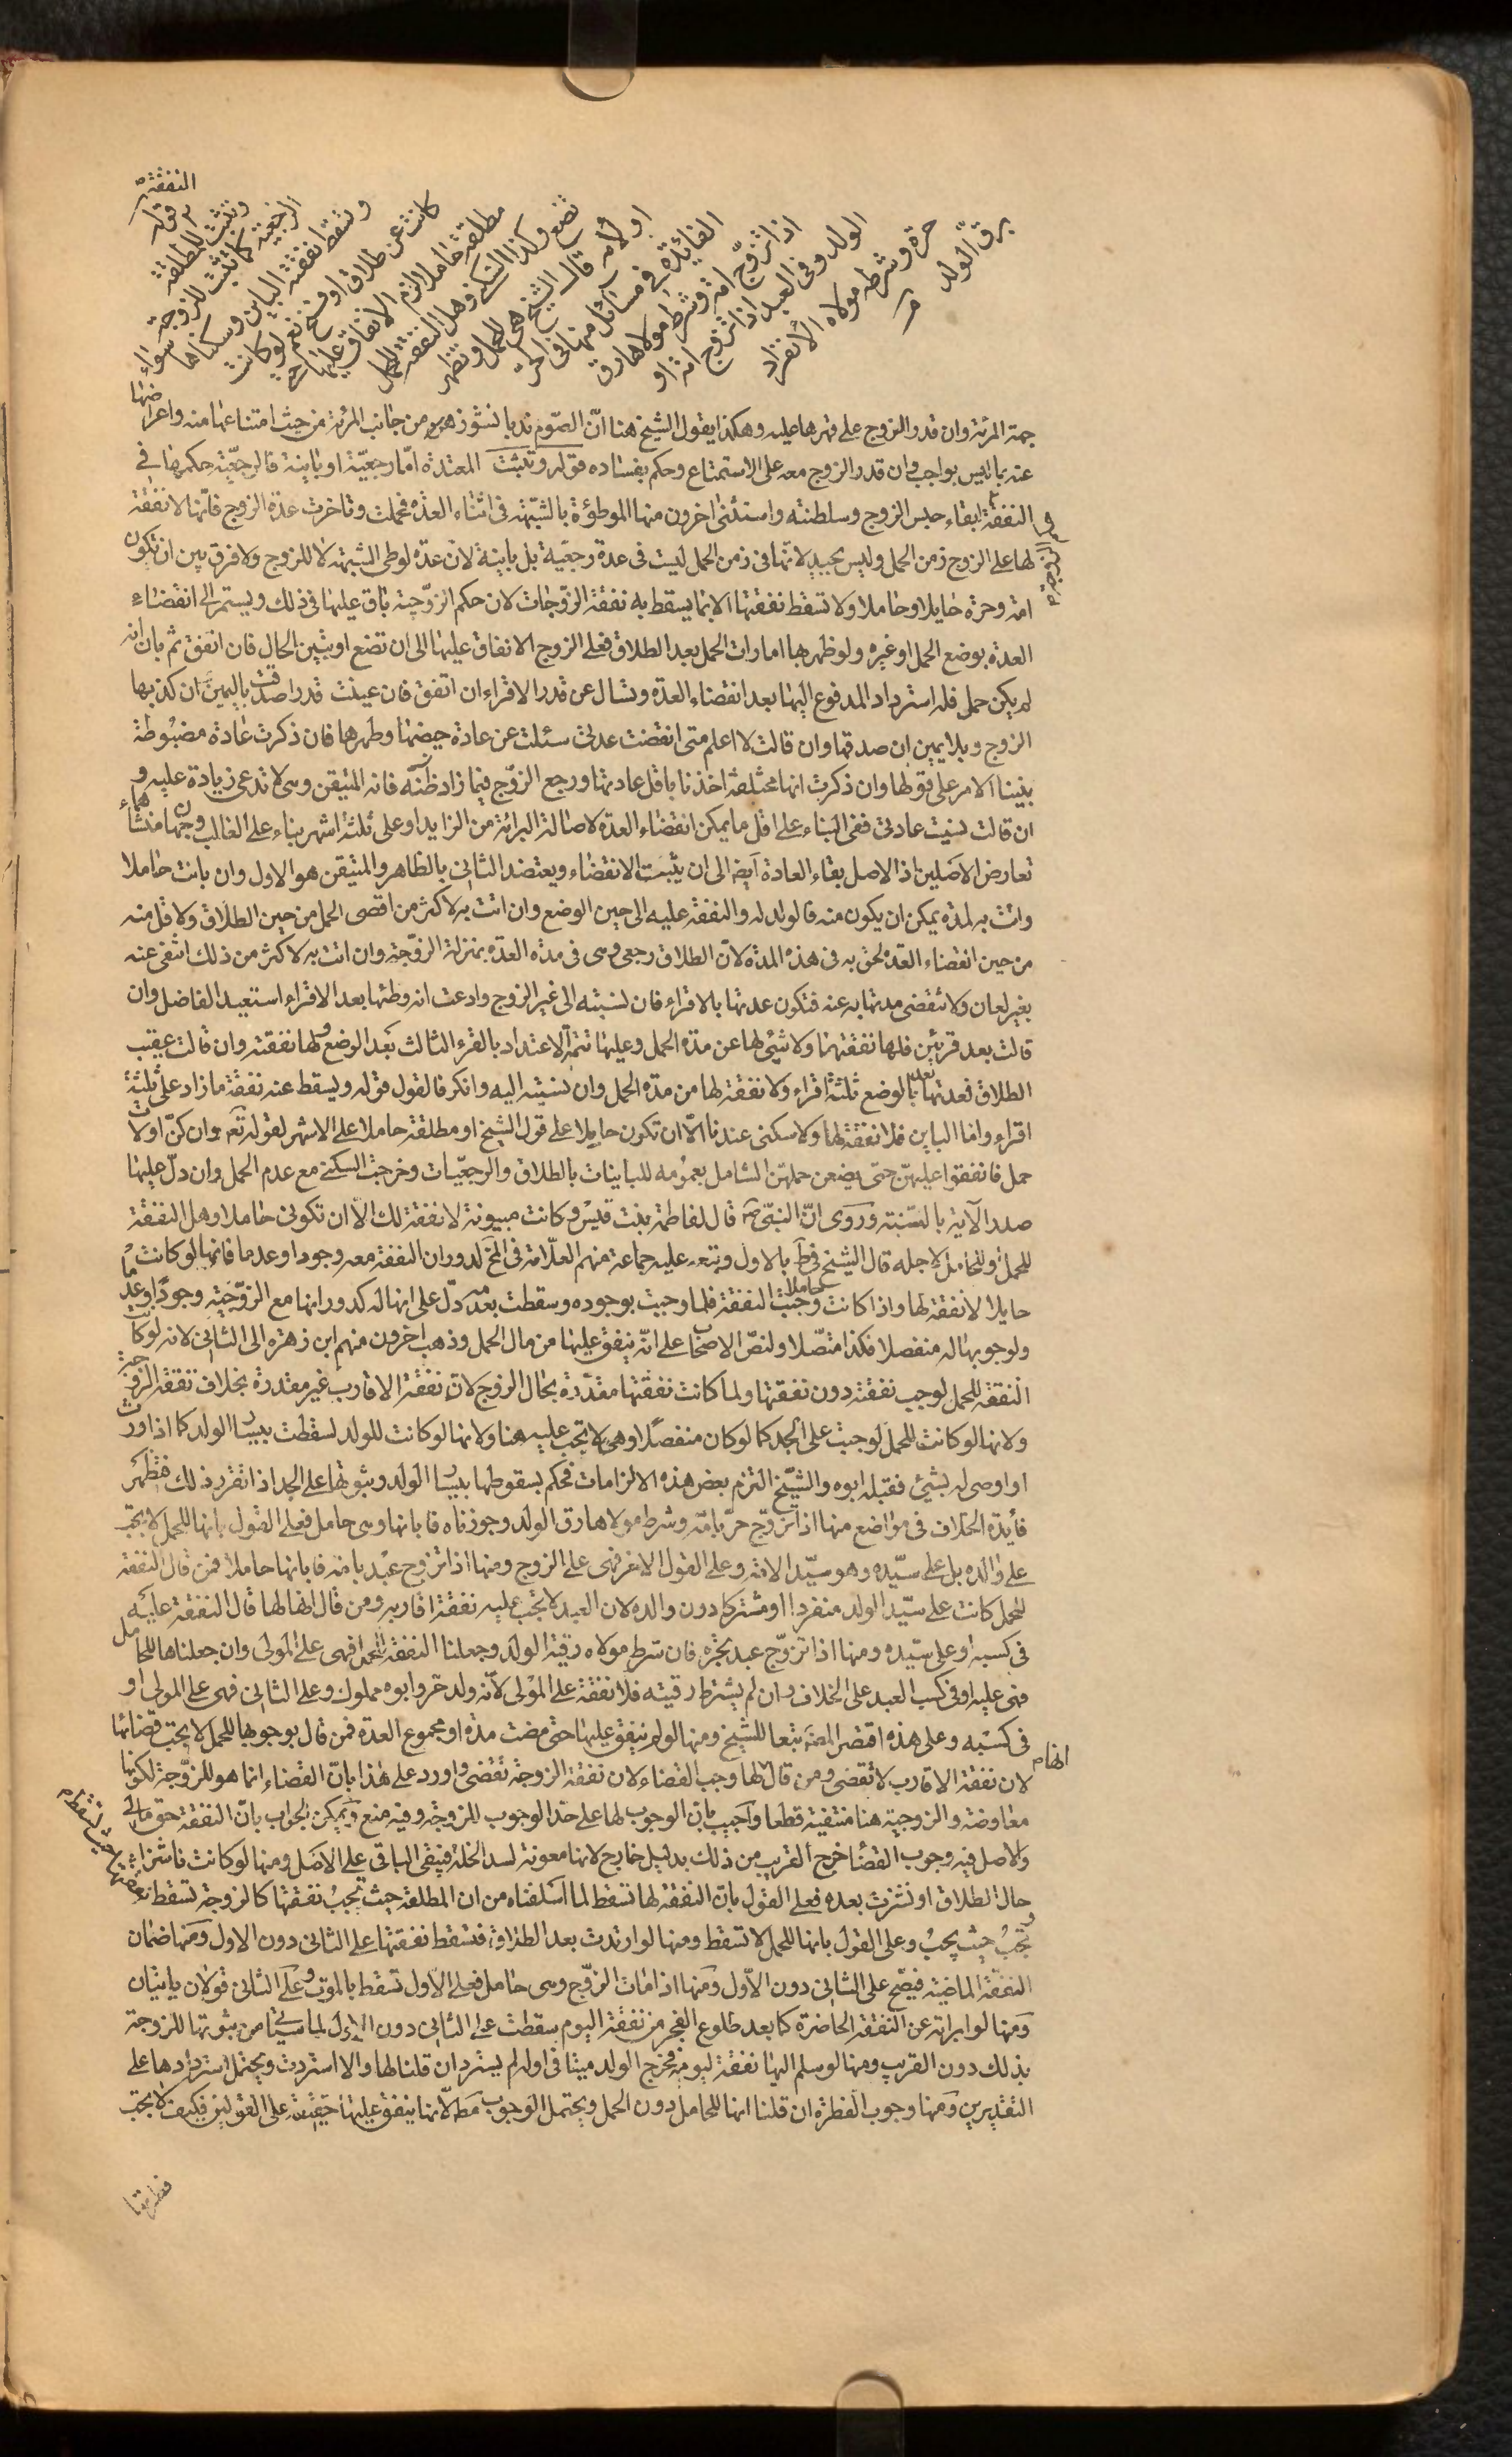 النفقة
قوله
وتثبت للمطلقة
الرجعية كما تثبت للزوجة
وتسقط نفقة الباين وسكناها سواء
كانت عن طلاق او فسخ نعم لو كانت
مطلقة حاملا لزم الانفاق عليها حتى
تضع وكذا السكنى وهل النفقة للحمل
او لامه قال الشيخ هي للحمل وتظهر
الفائدة في مسائل منها في الحر
اذا تزوج امة وشرط مولاها رق
الولد وفي العبد اذا تزوج امة او
حرة وشرط مولاه الانفراد
برق الولد
جهة المرئة وان قدر الزوج على قهرها عليه وهكذا يقول الشيخ هنا انّ الصّوم ندبا نشوز من جانب المرئة من حيث امتناعها منه واعراضها
عنه بما ليس بواجب وان قدر الزوج معه على الاستمتاع وحكم بفساده قوله وتثبت المعتدة امّا رجعيّة او باينة فالرجعيّة حكمها في
النفقة ابقاء حبس الزوج وسلطنته واستثنى اخرون منها الموطؤة بالشبّهة في اثناء العدّة فحملت وتاخرت عدة الزوج فانّها لا نفقة
لها على الزوج زمن الحمل وليس بجيد لانّها في زمن الحمل ليست في عدة رجعيّة بل باينة لانّ عدّة لوطى الشبهة لا للزوج ولا فرق بين ان تكون
امة وحرة حايلا وحاملا ولا تسقط نفقتها الا بما يسقط به نفقة الزوّجات لان حكم الزوّجية باق عليها في ذلك ويستمر الى انقضاء
العدة بوضع الحمل او غيره ولو ظهر بها امارات الحمل بعد الطلاق فعلى الزوج الانفاق عليها الى ان تضع او يتبين الحال فان انفق ثم بان انه
لم يكن حمل فله استرداد المدفوع اليها بعد انقضاء العدّة وتسال عن قدر الاقراء ان اتفق فان عينت قدرا صدقت باليمين ان كذبها
الزوج وبلا يمين ان صدقها وان قالت لا اعلم متى انقضت عدتى سئلت عن عادة حيضها وطهرها فان ذكرت عادة مضبوطة
بنينا الامر على قولها وان ذكرت انها مختلفة اخذنا باقل عادتها ورجع الزوّج فيما زاد فانه المتيقن وهى لا تدعى زيادة عليه و
ان قالت نسيت عادتى ففى البناء على اقل ما يمكن انقضاء العدة لاصالة البرائة من الزايد او على ثلثة اشهر بناء على الغالب وجهان منشأهما
تعارض الاصلين اذ الاصل بقاء العادة ايض الى ان يثبت الانقضاء ويعتضد الثاني بالظاهر والمتيقن هو الاول وان بانت حاملا
واتت به لمدة يمكن ان يكون منه فالولد له والنفقة عليه الى حين الوضع وان اتت به لاكثر من اقصى الحمل من حين الطلاق ولاقل منه
من حين انقضاء العدة لحق به في هذه المدة لانّ الطلاق رجعى وهى في مدة العدة بمنزلة الزوّجة وان اتت به لاكثر من ذلك انتفى عنه
بغير لعان ولا تنقضى عدتها به عنه فتكون عدتها بالاقراء فان نسبته الى غير الزوج وادعت انه وطئها بعد الاقراء استعيد الفاضل وان
قالت بعد قرئين فلها نفقتهما ولا شىء لها عن مدة الحمل وعليها تتمة الاعتداد بالقرء الثالث بعد الوضع ولها نفقته وان قالت عقيب
الطلاق فعدتها بعد الوضع ثلثة اقراء ولا نفقة لها من مدة الحمل وان نسبته اليه وانكر فالقول قوله ويسقط عنه نفقة ما زاد على ثلثة
اقراء واما الباين فلا نفقة لها ولا سكنى عندنا الّا ان تكون حايلا على قول الشيخ او مطلقة حاملا على الاشهر لقوله تعم وان كنّ اولات
حمل فانفقوا عليهنّ حتى يضعن حملهنّ الشامل بعمومه للباينات بالطلاق والرجعيّات وخرجت السكنى مع عدم الحمل وان دلّ عليها
صدر الآية بالسّنة وروى انّ النبىّ ص قال لفاطمة بنت قيس وكانت مبتوتة لا نفقة لك الّا ان تكونى حاملا وهل النفقة
للحمل او للحامل لاجله قال الشيخ في ط بالاول وتبعه عليه جماعة منهم العلّامة في المخ لدوران النفقة معه وجودا وعدما فانها لو كانت
حايلا لا نفقة لها واذا كانت حاملا وجبت النفقة فلما وجبت بوجوده وسقطت بعدمه دلّ على انها له كدورانها مع الزوّجية وجودا وعدما
ولوجوبها له منفصلا فكذا متّصلا ولنصّ الاصحاب على انّه ينفق عليها من مال الحمل وذهب اخرون منهم ابن زهرة الى الثاني لانه لو كان
النفقة للحمل لوجب نفقته دون نفقتها ولما كانت نفقتها مقدّرة بحال الزوج لانّ نفقة الاقارب غير مقدرة بخلاف نفقة الزوّجة
ولانها لو كانت للحمل لوجبت على الجد كما لو كان منفصلا وهى لا تجب عليه هنا ولانها لو كانت للولد لسقطت بيسار الولد كما اذا ورث
او اوصى له بشىء فقبله ابوه والشيّخ التزم بعض هذه الالزامات فحكم بسقوطها بيسار الولد وثبوتها على الجد اذا تقرر ذلك فتظهر
فايدة الخلاف في مواضع منها اذا تزوّج حرّ بامة وشرط مولاها رق الولد وجوزناه فابانها وهى حامل فعلى القول بانها للحمل لا تجب
على والده بل على سيّده وهو سيّد الامة وعلى القول الاخر فهى على الزوج ومنها اذا تزوج عبد بامة فابانها حاملا فمن قال النفقة
للحمل كانت على سيّد الولد منفردا او مشتركا دون والده لان العبد لا تجب عليه نفقة اقاربه ومن قال انها لها قال النفقة عليه
في كسبه او على سيّده ومنها اذا تزوّج عبد بحرة فان شرط مولاه رقية الولد وجعلنا النفقة للحمل فهى على المولى وان جعلناها للحامل
فهى عليه او في كسب العبد على الخلاف وان لم يشترط رقيته فلا نفقة على المولى لانّه ولد حرّ وابوه مملوك وعلى الثاني فهى على المولى او
في كسبه وعلى هذه اقتصر المصّ تبعا للشيخ ومنها لو لم ينفق عليها حتى مضت مدة او مجموع العدة فمن قال بوجوبها للحمل لا يجب قضائها
لان نفقة الاقارب لا تقضى ومن قال لها وجب القضاء لان نفقة الزوجة تقضى واورد على هذا بانّ القضاء انما هو للزوّجة لكونها
معاوضة والزوجية هنا منتفية قطعا واجيب بانّ الوجوب لها على حدّ الوجوب للزوجة وفيه منع ويمكن الجواب بانّ النفقة حق مالى
والاصل فيه وجوب القضا خرج القريب من ذلك بدليل خارج لانها معونة لسد الخلة فيبقى الباقى على الاصل ومنها لو كانت ناشزا
حال الطلاق او نشزت بعده فعلى القول بانّ النفقة لها تسقط لما اسلفناه من ان المطلقة حيث تجب نفقتها كالزوجة تسقط
وتجب حيث يجب وعلى القول بانها للحمل لا تسقط ومنها لو ارتدت بعد الطلاق فتسقط نفقتها على الثاني دون الاول ومنها ضمان
النفقة الماضية فيصّح على الثاني دون الاّول ومنها اذا مات الزوّج وهى حامل فعلى الاول تسقط بالموت وعلى الثاني قولان ياتيان
ومنها لو ابراته عن النفقة الحاضرة كما بعد طلوع الفجر من نفقة اليوم سقطت على الثاني دون الاول لما سيئتى من ثبوتها للزوجة
بذلك دون القريب ومنها لو سلم اليها نفقة ليومه فخرج الولد ميتا في اوله لم يسترد ان قلنا لها والا استردت ويحتمل استردادها على
التقديرين ومنها وجوب الفطرة ان قلنا انها للحامل دون الحمل ويحتمل الوجوب مط لانّها ينفق عليها حقيقة على القولين فكيف لا تجب
فطرتها